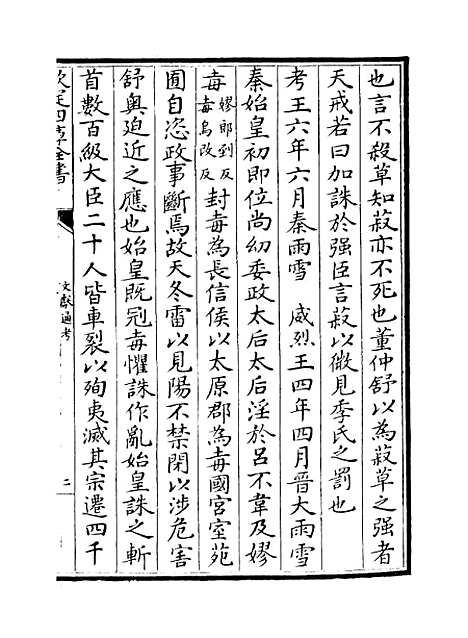 也言不殺草知菽亦不死也董仲舒以為菽草之强者
天戒若曰加誅於强臣言菽以微見季氏之罰也
考王六年六月秦雨雪　威烈王四年四月晉大雨雪
秦始皇初即位尚幼委政太后太后淫於呂不韋及嫪
毐嫪郎到反毐烏改反封毐為長信侯以太原郡為毐國宮室苑
囿自恣政事斷焉故天冬雷以見陽不禁閉以涉危害
舒奧迫近之應也始皇既冠毐懼誅作亂始皇誅之斬
首數百級大臣二十人皆車裂以殉夷滅其宗遷四千
欽定四庫全書
文獻通考
二